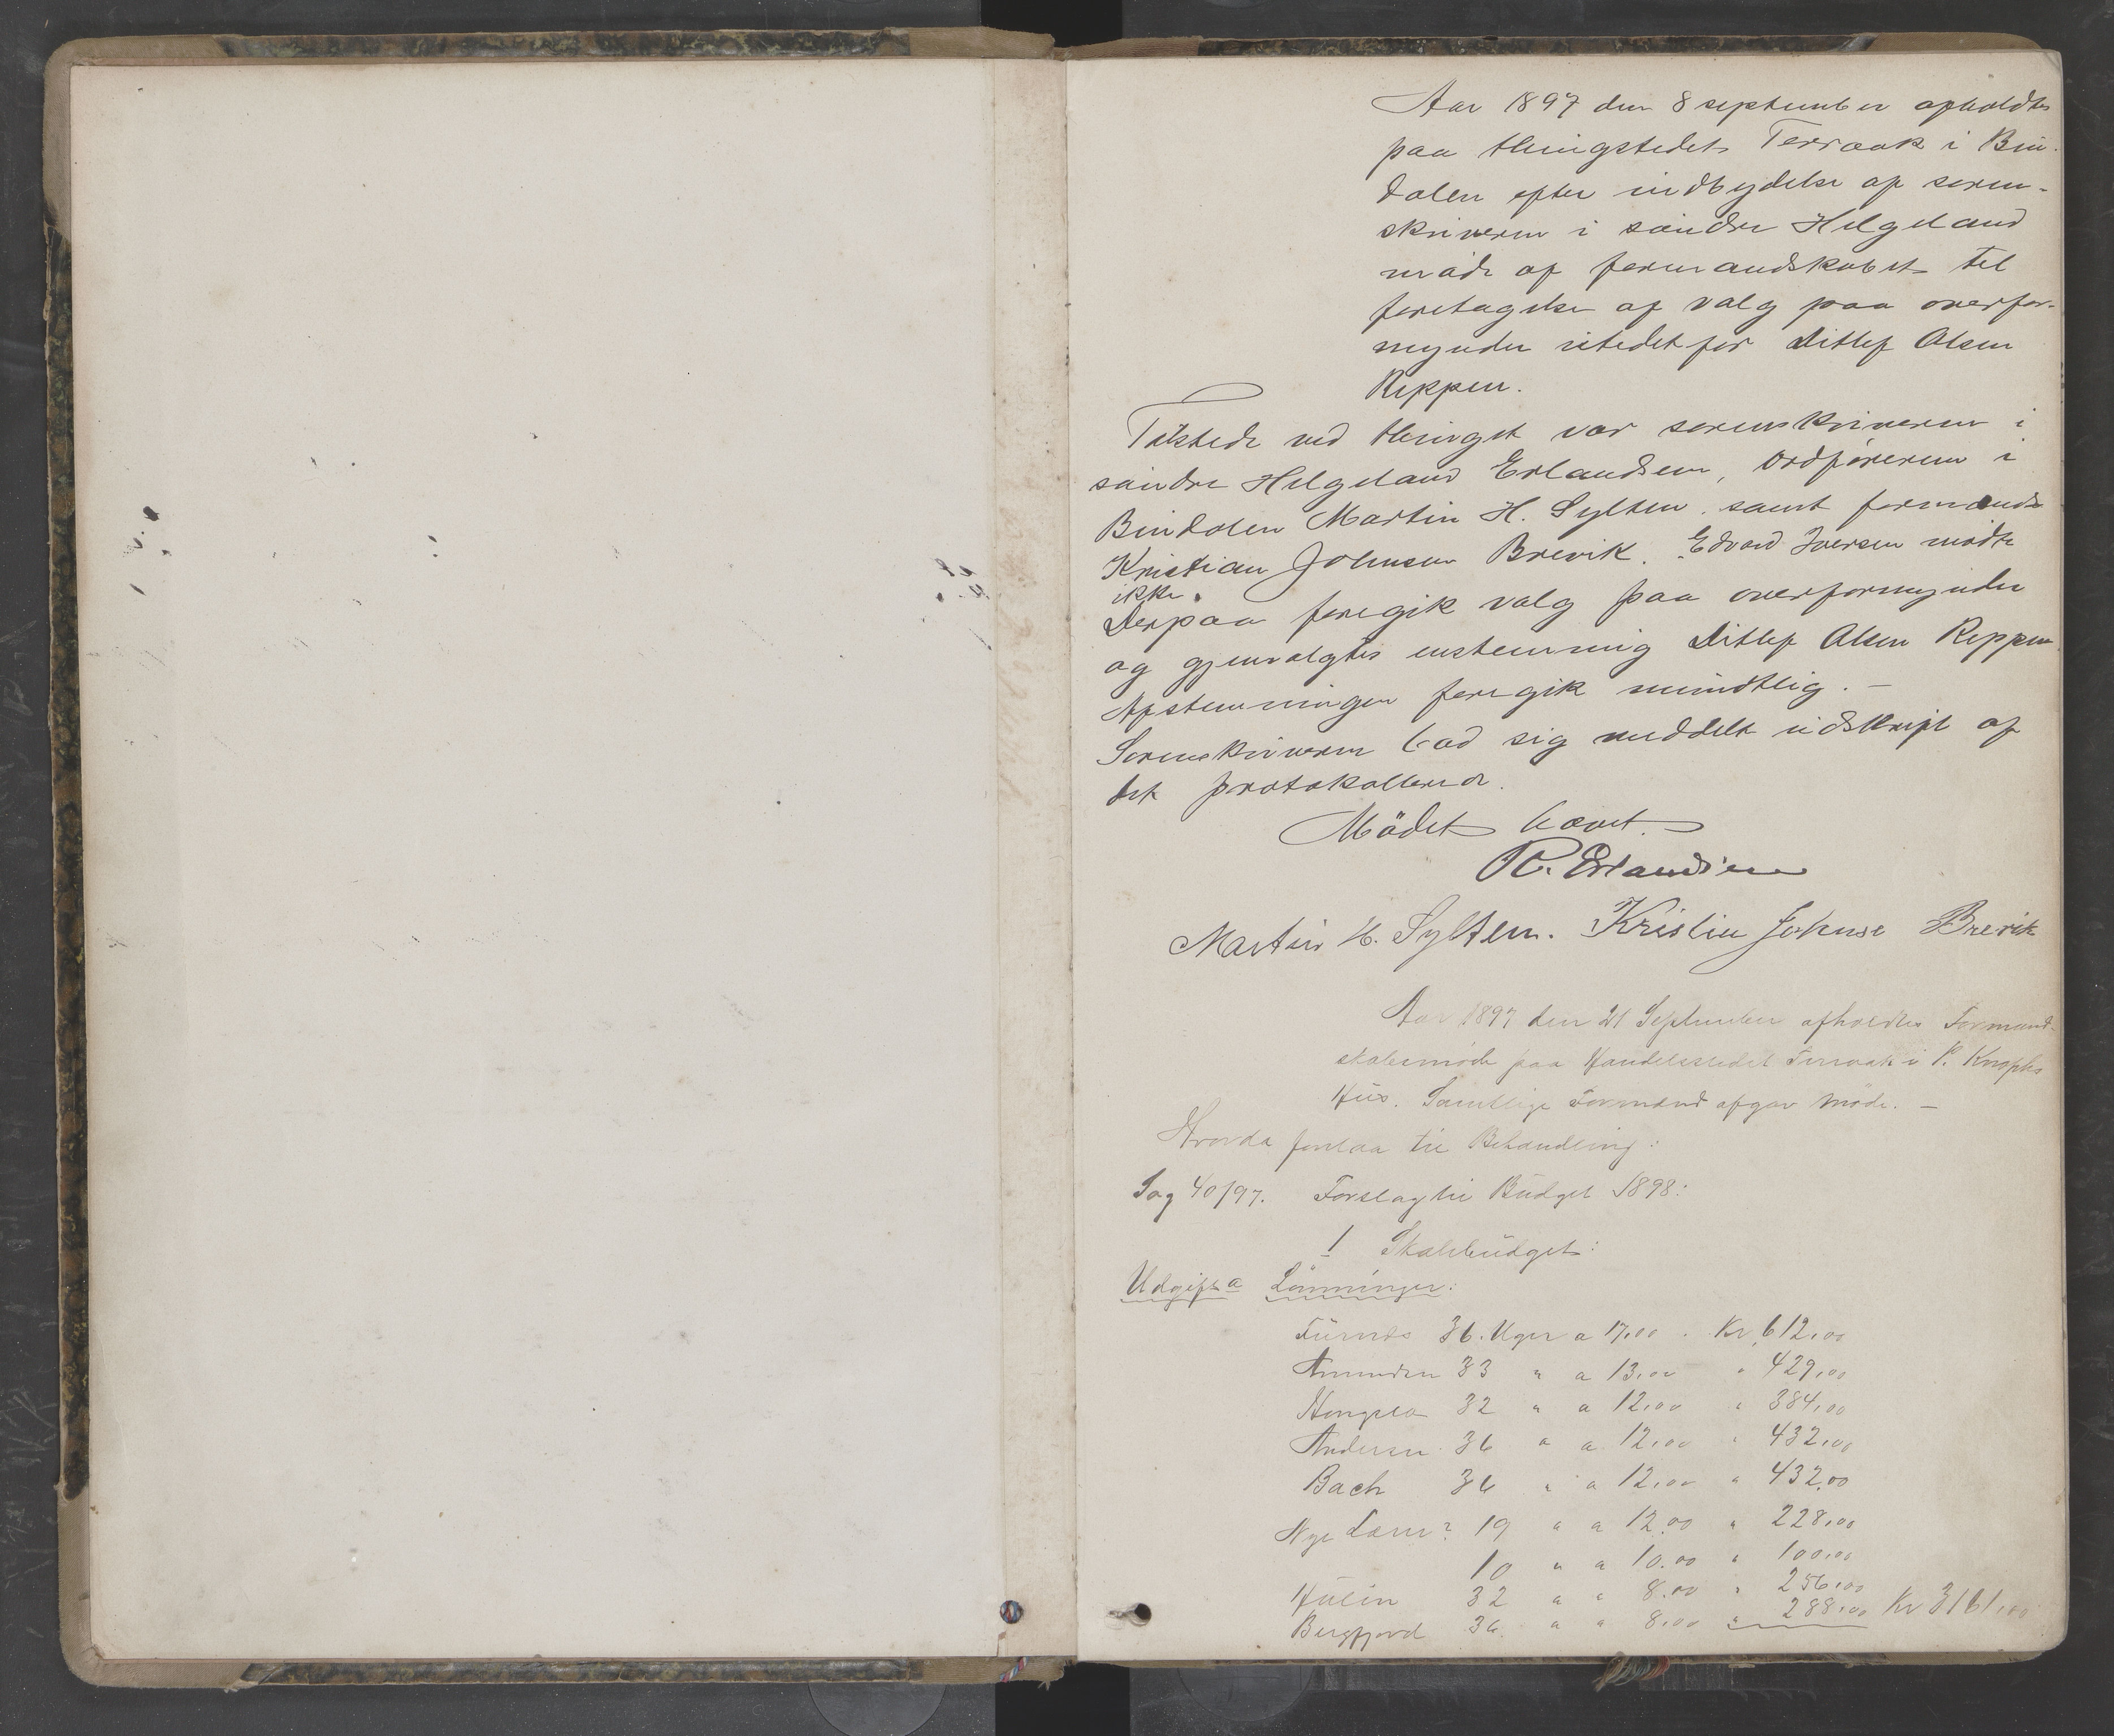 Aar 1897 den 8 september afholdtes
paa thingstedet Terraak i Bin-
dalen efter indbydelse af soren-
skriveren i söndre Helgeland
möde af formandskabet til
foretagelse af valg paa overfor-
mynder istedetfor Ditlef Olsen
Reppen.
Tilstede ved thinget var sorenskriveren i
söndre Helgeland Erlandsen, Ordföreren i
Bindalen Martin H. Sylten, samt formænd
Kristian Johnsen Brevik. Edvard Iversen mödte
ikke.
Derpaa foregik valg paa overformynder
og gjenvalgtes enstemmig Ditlef Olsen Reppen.
Afstemningen foregik mündtlig. –
Sorenskriveren bad sig meddelt udskrift af
det protokollerede.
Mödet hævet.
Erlandsen
Martin H. Sylten. Kristin Johnse Brevik
Aar 1897 den 21 September afholdtes Formand-
skabsmöde paa Handelsstedet Terraak i P. Knophs
Hüs. Samtlige Formænd afgav Möde. –
Hvorda forelaa til Behandling:
Sag 40/97. Forslag til Büdget 1898:
1 Skolebüdget:
Udgift a Lönninger:
36. Uger a 17,00 . Kr 612,00
33 " a 13,00 " 429,00
32 " a 12,00 " 384,00
Andersen 36 " a 12,00 " 432,00
Bach 36 " a 12,00 " 432,00
Nye Lærer? 19 " a 12,00 " 228,00
10 " a 10.00 " 100,00
32 " " 8.00 " 256,00
Bergfjord 36 " " 8,00 " 288,00 Kr 3161,00